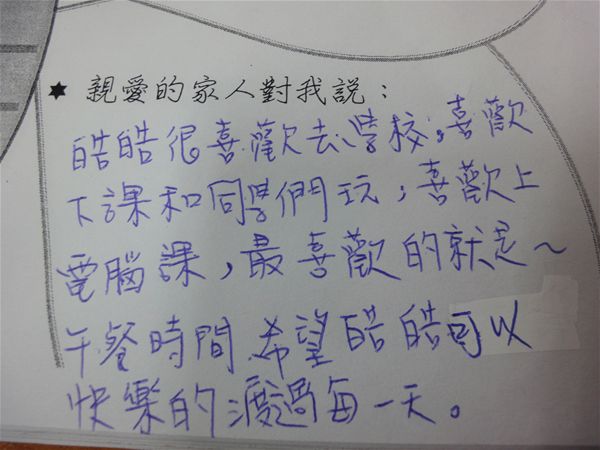 ★ 親愛的家人對我說：
皓皓很喜歡去學校。喜歡
下課和同學們玩，喜歡上
電腦課，最喜歡的就是～
午餐時間.希望皓皓可以
快樂的渡過每一天。